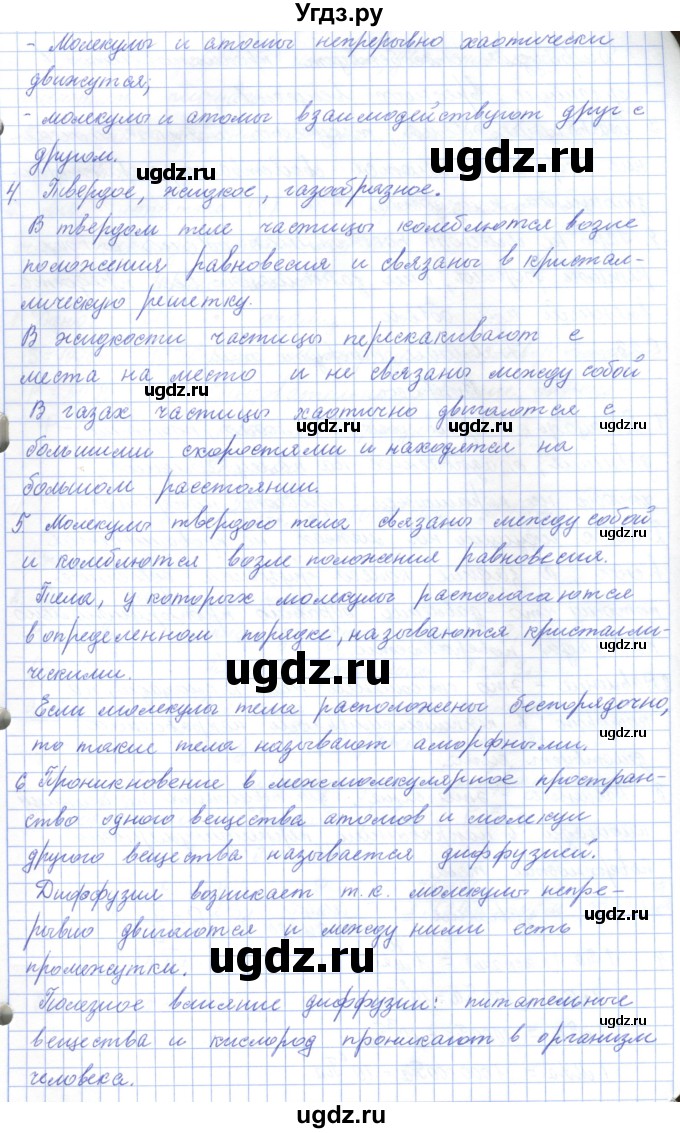 Угдз.ру
- Молекулы и атомы непрерывно хаотически
движутся;
- молекулы и атомы взаимодействуют друг с
другом.
4. Твердое, жидкое, газообразное.
В твердом теле частицы колеблются возле
положения равновесия и связаны в кристал-
лическую решетку.
В жидкости частицы перескакивают с
места на место и не связаны между собой
В газах частицы хаотично двигаются с
большими скоростями и находятся на
большом расстоянии.
5. Молекулы твердого тела связаны между собой
и колеблются возле положения равновесия.
Тела, у которых молекулы располагаются
в определенном порядке, называются кристалли-
ческими.
Если молекулы тела расположены беспорядочно,
то такие тела называют аморфными.
6 Проникновение в межмолекулярное простран-
ство одного вещества атомов и молекул
другого вещества называется диффузией.
Диффузия возникает т.к. молекулы непре-
рывно двигаются и между ними есть
промежутки.
Полезное влияние диффузии: питательные
вещества и кислород проникают в организм
человека.
ugdz.ru